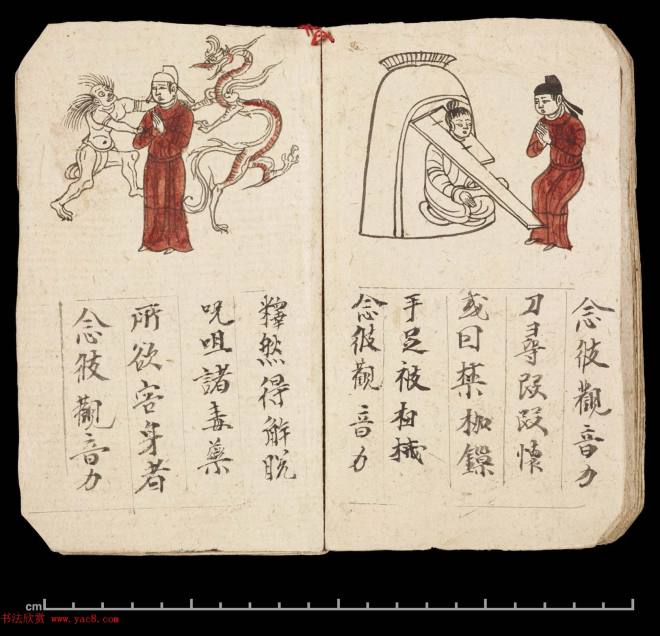 念彼觀音力
刀尋段段懷
或囚禁枷鏁
手足被杻械
念彼觀音力
釋然得解脱
呪咀諸毒藥
所欲害身者
念彼觀音力
cm
书法欣赏 www.yac8.com